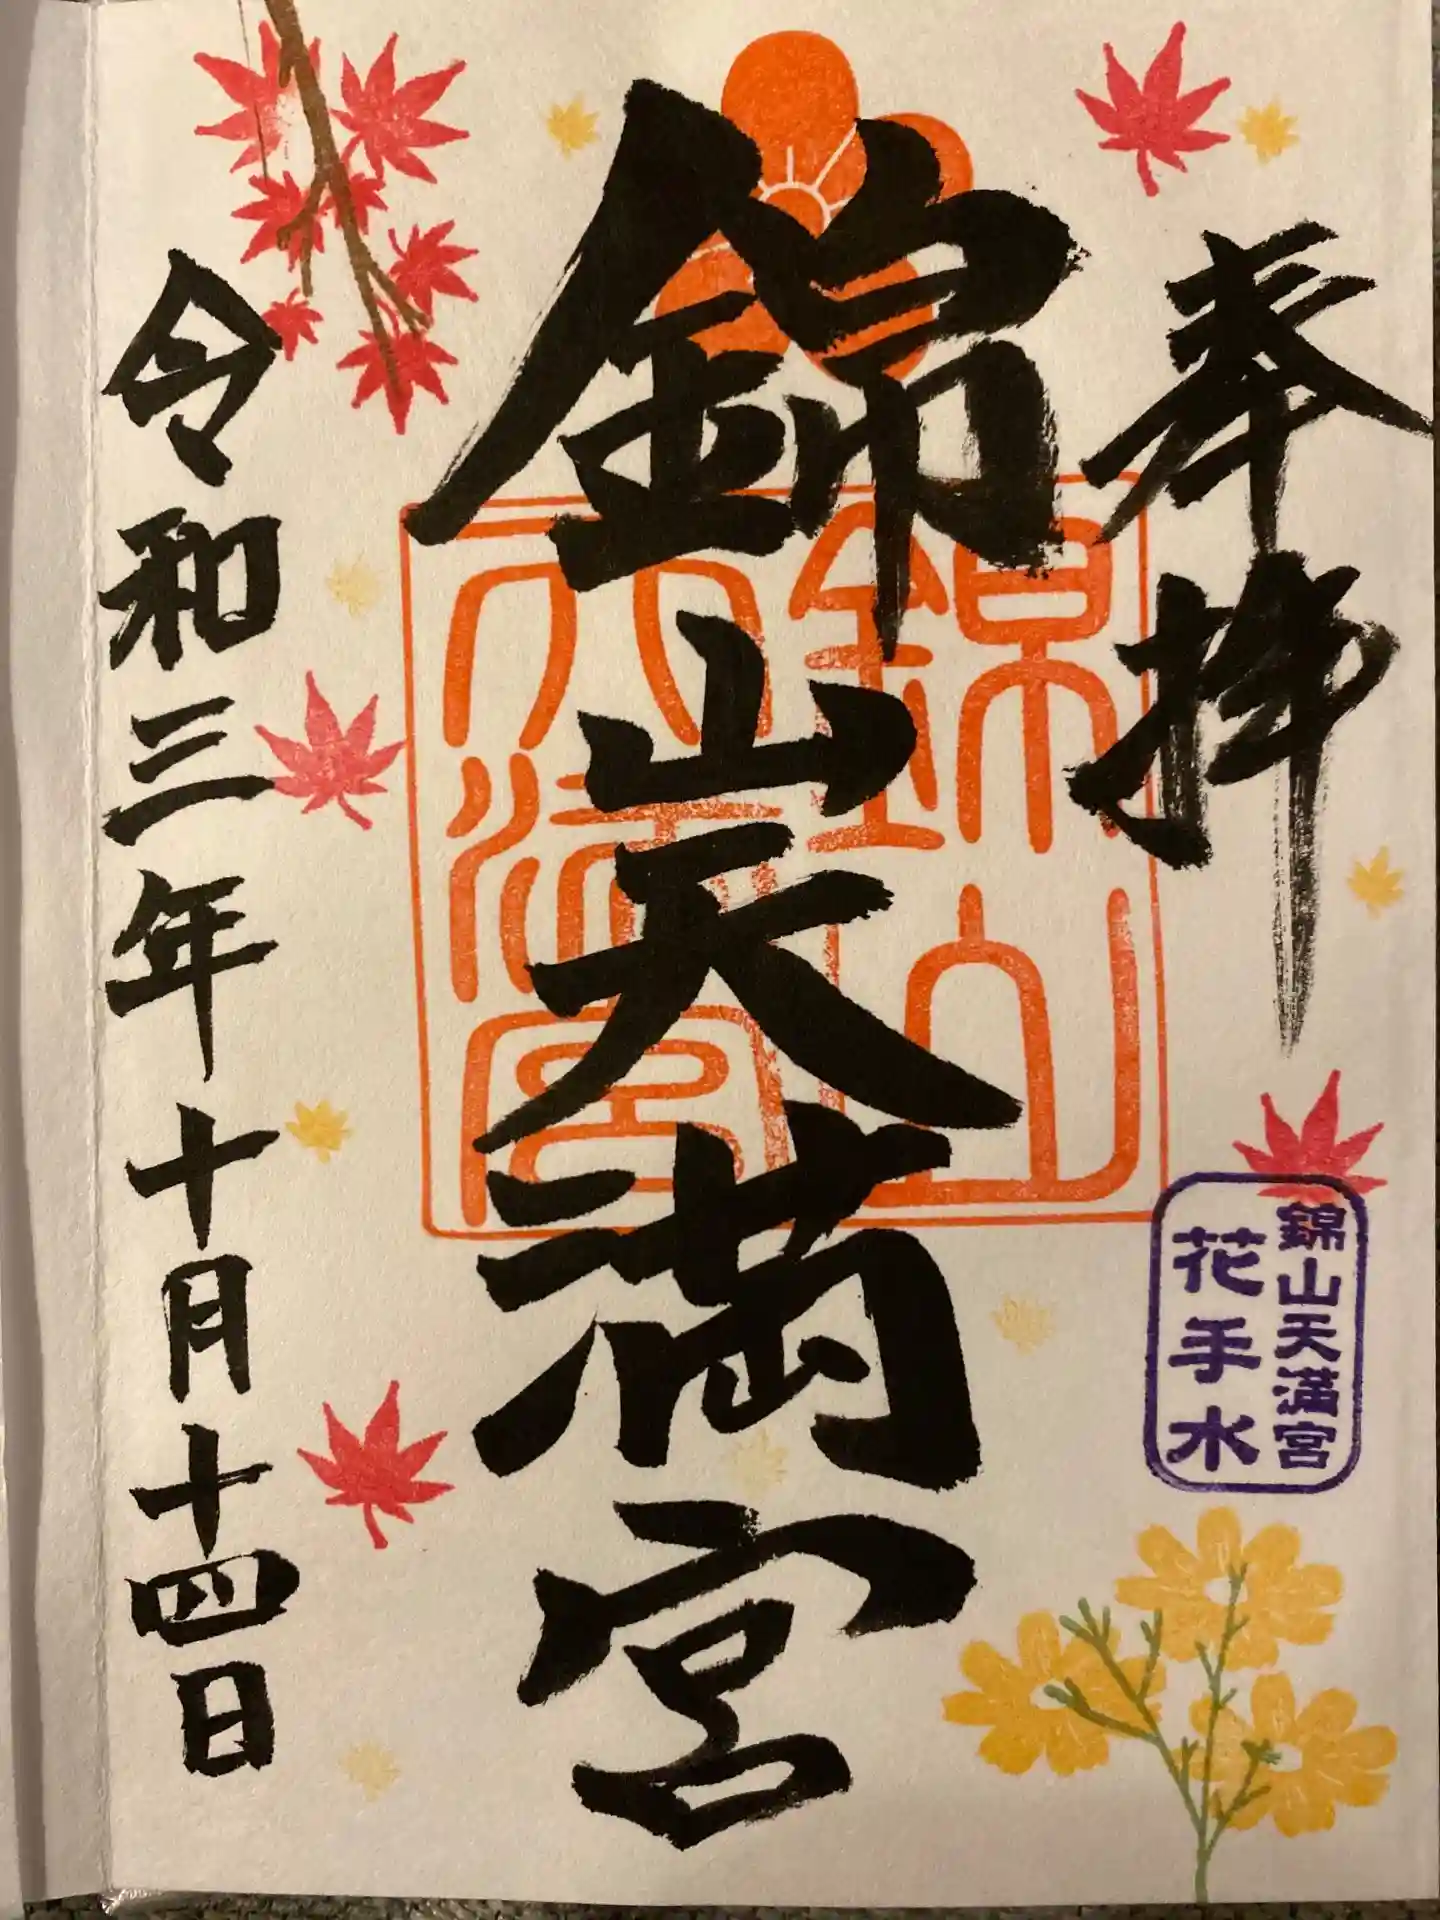 奉拝
錦山天満宮
錦山
天満宮
錦山天満宮
花手水
令和三年十月十四日